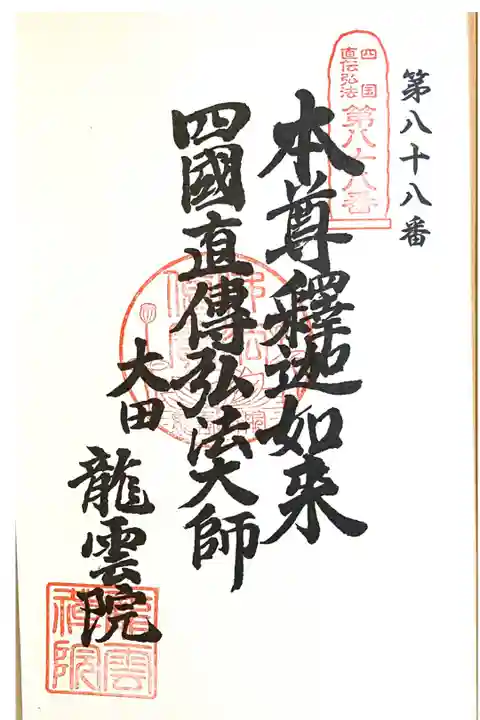 第八十八番
四国
直伝弘法
第八十八番
本尊釋迦如来
四國直傳弘法大師
大田
龍雲院
龍雲
禅院